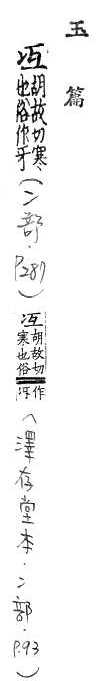 玉篇
冱胡故切寒也俗作牙(冫部·P.287)冱胡故切寒也俗作冴(澤存堂本·冫部·P.93)